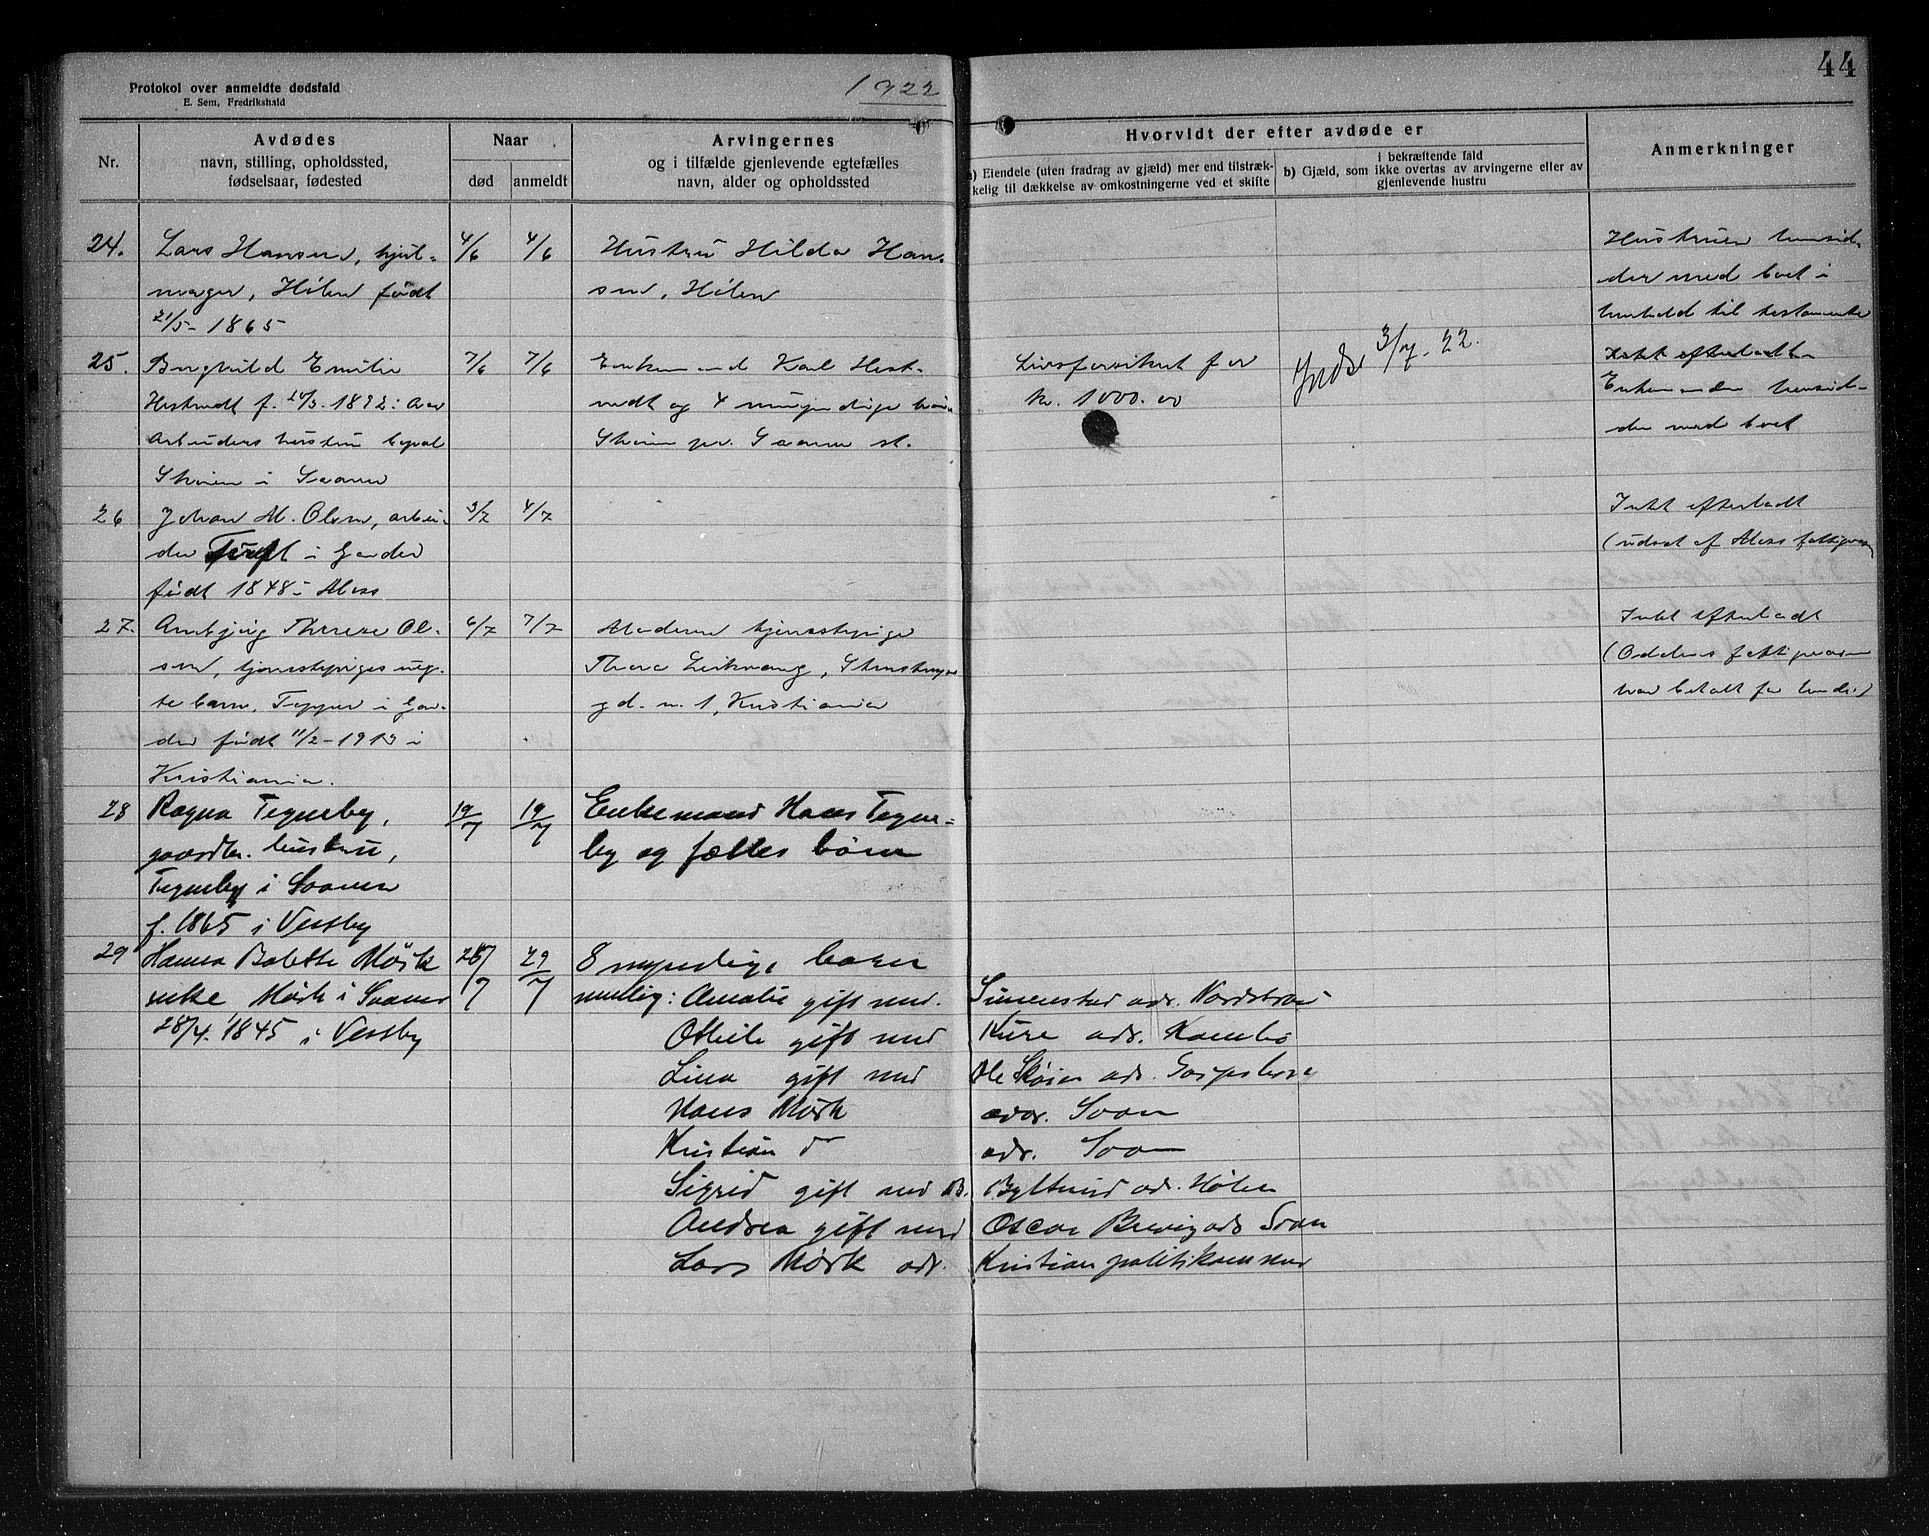 Protokol over anmeldte dødsfald
E. Sem, Fredrikshald
1922
44
Nr.
Avdødes
navn, stilling, opholdssted,
fødselsaar, fødested
Naar
død
anmeldt
Arvingernes
og i tilfælde gjenlevende egtefælles
navn, alder og opholdssted
Hvorvidt der efter avdøde er
a) Eiendele (uten fradrag av gjæld) mer end tilstræk-
kelig til dækkelse av omkostningerne ved et skifte
i bekræftende fald
b) Gjæld, som ikke overtas av arvingerne eller av
gjenlevende hustru
Anmerkninger
24.
Lars Hansen, hjul-
mager, Hölen født
21/5-1865
4/6
4/6
Hustru Hilda Han-
sen, Hölen
Hustruen hensid-
der med boet i
henhold til testamente
25.
Borghild Emilie
f. 1892 i Aas
Arbeiders hustru
i Saaner
7/6
7/6
Enkemand Karl
og 4 umyndige børn
pr. Saaner st.
Livsforsikret for
kr. 1000.00
3/7. 22.
Intet efterladt
Enkemanden hensid-
der med boet
26
Johan M. Olsen, arbei-
der i Garder
født 1848 i Moss
3/7
4/7
Intet efterladt
(udsat af Moss fattigvæsen)
27.
Therese Ol-
sen, tjenestepiges ueg-
te barn, Tepper i Gar-
der født 11/2-1913 i
Kristiania.
6/7
7/7
Moderen tjenestepige
Thora
gd. n. 1, Kristiania
Intet efterladt
fattigvæsen
har betalt for hende)
28
Ragna Tegneby,
gaardbr. hustru,
Tegneby i Saaner
f. 1865 i Vestby
19/7
19/7
Enkemand Hans Tegne-
by og fælles börn
29
Hanna Bolette Mörk
enke Mörk i Saaner
28/4. 1845 i Vestby
29/7
8 myndige barn
nemlig: Amalie gift med
Simenstad adr. Nordstrand
Othilie gift med
Kure adr. Kambo
Lina gift med
Ole Skøien adr.
Hans Mörk
adr. Soon
Kristian do
adr. Soon
Sigrid gift med B.
Bylterud adr. Hölen
Andrea gift med
Oscar Brevig adr Soon
Lars Mörk adr.
Kristian politikammer